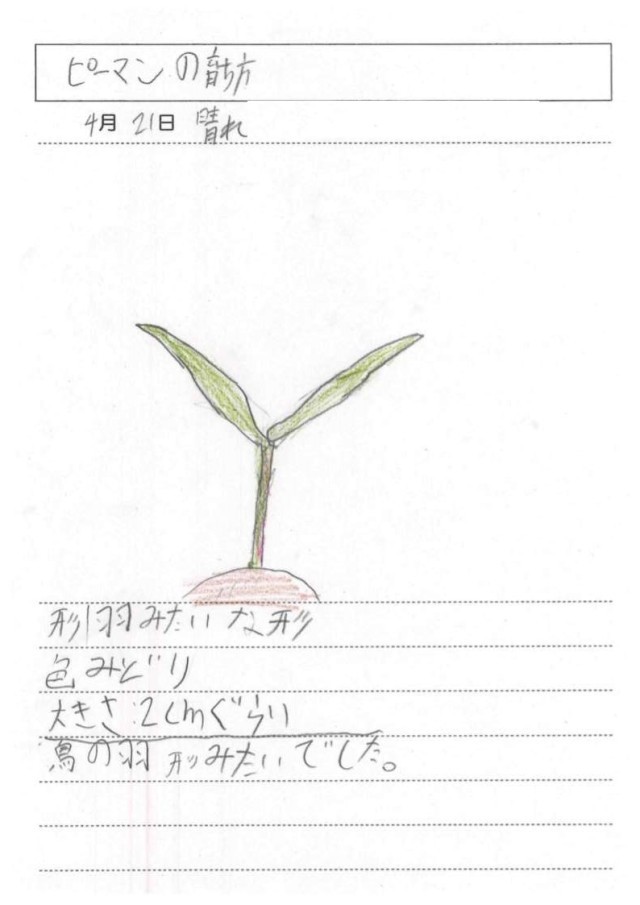 ピーマンの育ち方
4月 21日 晴れ
形 羽みたいな形
色 みどり
大きさ:2cmぐらい
鳥の羽形みたいでした。